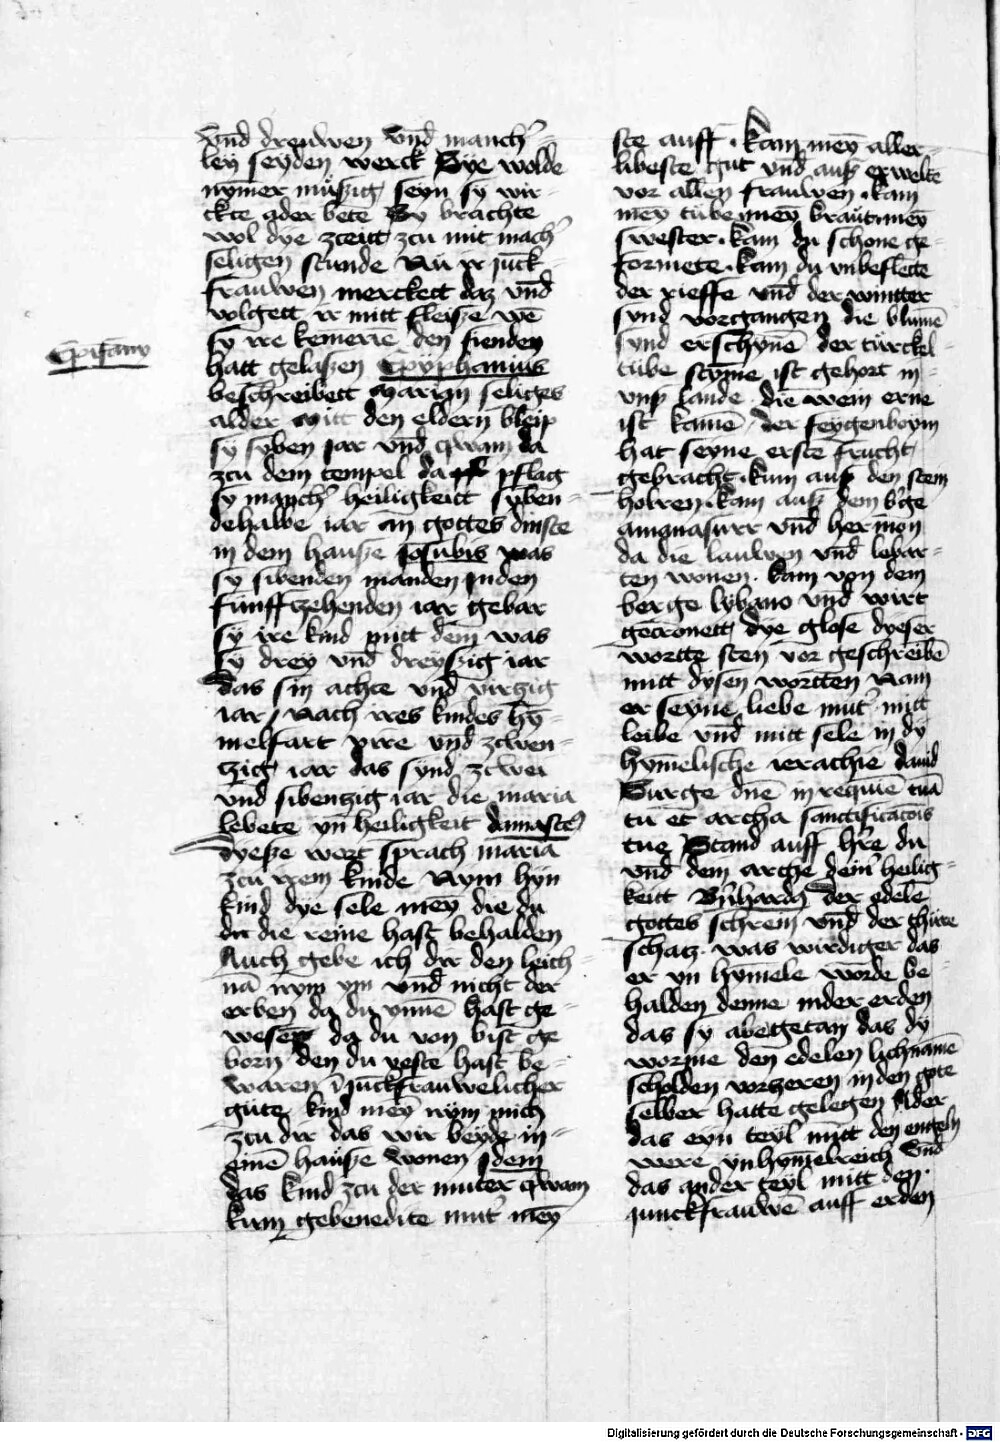 vnd drewen vnd manch̉
leÿ seÿden werck Sÿe wolde
nÿmer müszig seyn sy wir-
ckte ader bete Sy brachte
wol dÿe zceitt zcu mit mach̉
seligen stunde Nü yr jüc̄k
frauwen merckett daz vnd
volgett yr mitt fleisze wē
sÿ ire kemerīe den fienden
hatt gelaszen Epÿphanius
Epifany
beschreibett marian seliges
alder mitt den eldern bleip
sÿ syben iar vnd qwam da
zcu dem tempel da pflag
sy manch̉ heiligkeitt syben-
dehalbe iar an gottes dinste
in dem hausze iosübis was
sÿ sibenden manden Jnden
fünffczehenden iar gebar
sÿ ire kind mitt dem was
sÿ dreÿ vnd dreÿszig iar
das sin achte vnd virzig
iar / Nach ires kindes hÿ-
melfart vire vnd zcwen-
tzig iar das synd zcwei
vnd sibentzig iar die maria
lebete yn heiligkeit damasce᷒
dÿesze wort sprach maria
zcu irem kinde Nym hyn
kind dye sele meÿ die du
du die reine hast behalden
Auch gebe ich dir den leich-
nā nym ym vnd nicht der
erden da du ynnē hast ge-
wesen da du von bist ge
born den du veste hast be-
waren ī jückfrauwelicher
güte kind meÿ nym mich
zcu dir das wir beÿde in-
einē hausze wonen Jdem
das kind zcu der muter qwam
kum gebenedite mut̉ meÿ
ste auff · kam meÿ aller-
libeste gut vnd ausz erwelte
vor allen frauwen · kam
meÿ tübe meÿ braut meÿ
swester · kam du schone ge-
formete · kam du vnbeflecte
der rieffe vnd der wintter
synd vorgangen die blumē
synd erschynē der türckel-
tübe styme ist gehort in-
vnsz lande die wein erne
ist kamē der feygenboym
hat seyne erste frucht
gebracht · kum ausz den stein
holren · kam ausz dem b̉ge
amanasurr vnd hermon
da die lauwen vnd lebar-
ten wonen · kam von dem
berge lÿbano vnd wirt
gecronett dye glose dyeser
wortte sten vor geschrebē
mitt dÿsen wortten Nam
er seyne liebe mut̉ mitt
leibe vnd mitt sele in dÿ
hÿmelische ierachie dauid
Surge dn̄e in requiē tuā
tu et archa sanctificac̄ois
tue Stand auff h̉re du
vnd dem arche dein̉ heilig-
keitt B̉nhard̉ Der edele
gottes schrein vnd der thüre
schatz · was wirdiger das
er yn hymele worde be-
halden denne inder erden
das sy abegetan das dÿ
worme den edelen lichnamē
scholden vorzeren in den gote
selber hatte gelegen Ader
das eyn teyl mitt den engeln
were yn hymelreich Vnd
das ander teyl mitt den
junckfrauwē auff erden
Digitalisierung gefördert durch die Deutsche Forschungsgemeinschaft - DFG